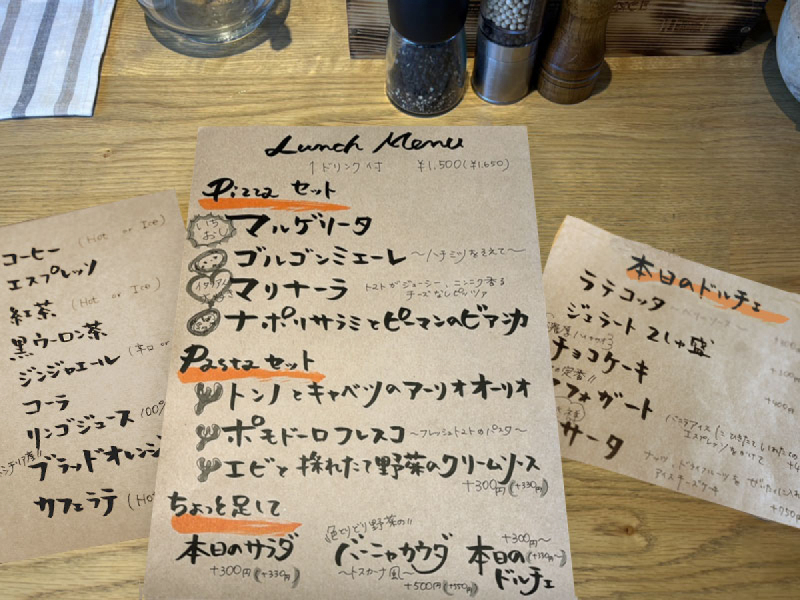 Lunch Menu
↑ドリンク付 ¥1,500(¥1,650)
Pizza セット
いちおし マルゲリータ
ゴルゴンミエーレ 〜ハチミツを添えて〜
マリナーラ トマトがジューシー、ニンニク香る
チーズなしピッツァ
ナポリサラミとピーマンのビアンカ
Pasta セット
トンノとキャベツのアーリオオーリオ
ポモドーロフレスコ 〜フレッシュトマトのパスタ〜
エビと採れたて野菜のクリームソース
+300円(+330円)
ちょっと足して
本日のサラダ
+300円(+330円)
色とりどり野菜の!!
バーニャカウダ
〜トスカーナ風〜
+500円(+550円)
+300円〜
(+330円〜)
本日の
ドルチェ
コーヒー (Hot or Ice)
エスプレッソ
紅茶 (Hot or Ice)
黒ウーロン茶
ジンジャエール
コーラ
リンゴジュース 100%
ブラッドオレンジ
カフェラテ (Ho
本日のドルチェ
ラテコッタ
ジェラート 2しゅ盛
チョコケーキ
の定番!!
フォガート
バニラアイスに
エスプレッソをかけて
サータ
ナッツ、ドライフルーツを ぜいたくに入れた
アイスチーズケーキ